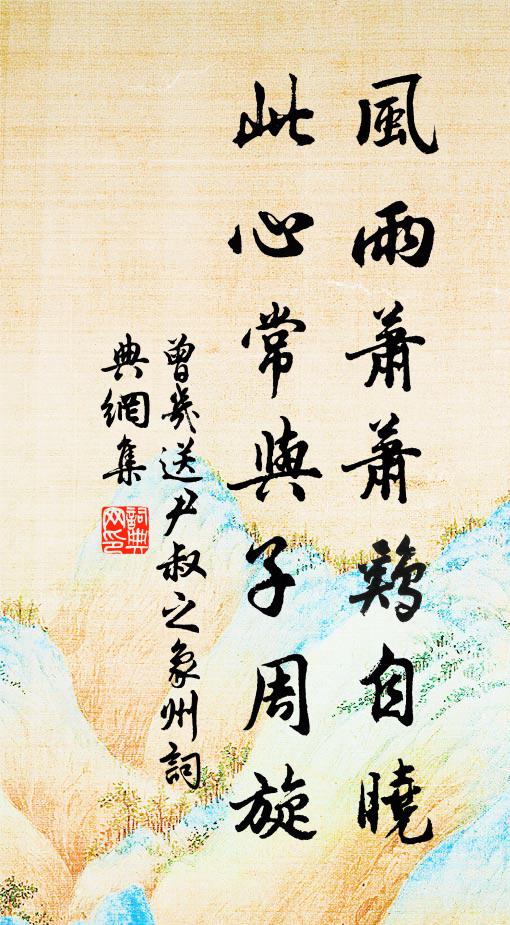 風雨蕭蕭鶏自曉
此心常與子周旋
曾幾送尹叔之象州詞
典網集
詞典網印